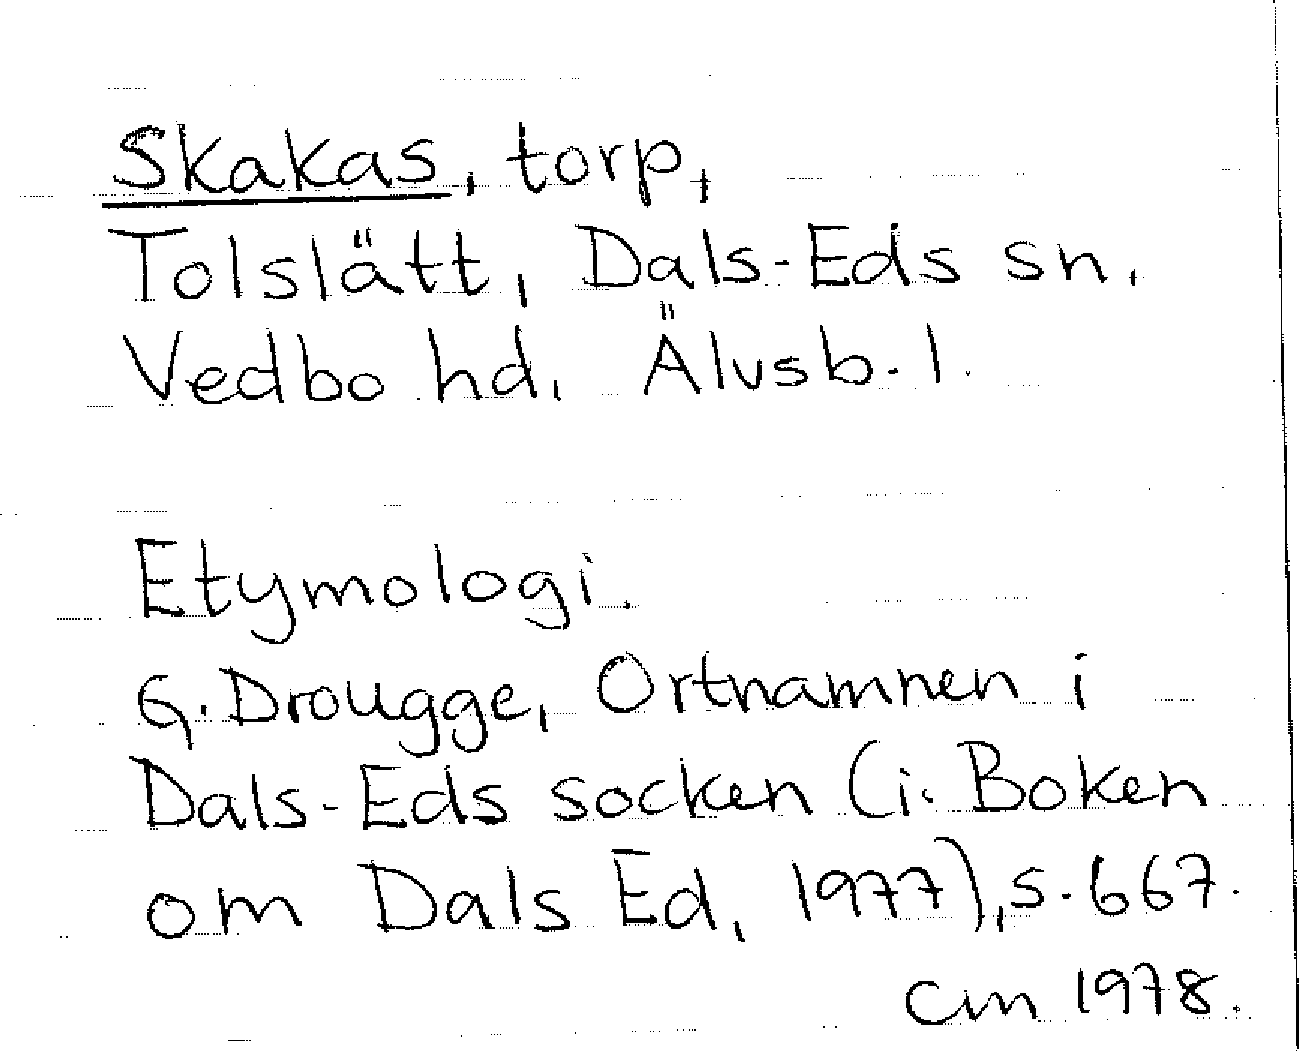 Skakas, torp,
Tolslätt, Dals-Eds sn.
Vedbo hd. Älvsb. l.
Etymologi.
G. Drougge, Ortnamnen i
Dals-Eds socken (i: Boken
om Dals Ed, 1977), s. 667.
cm 1978.